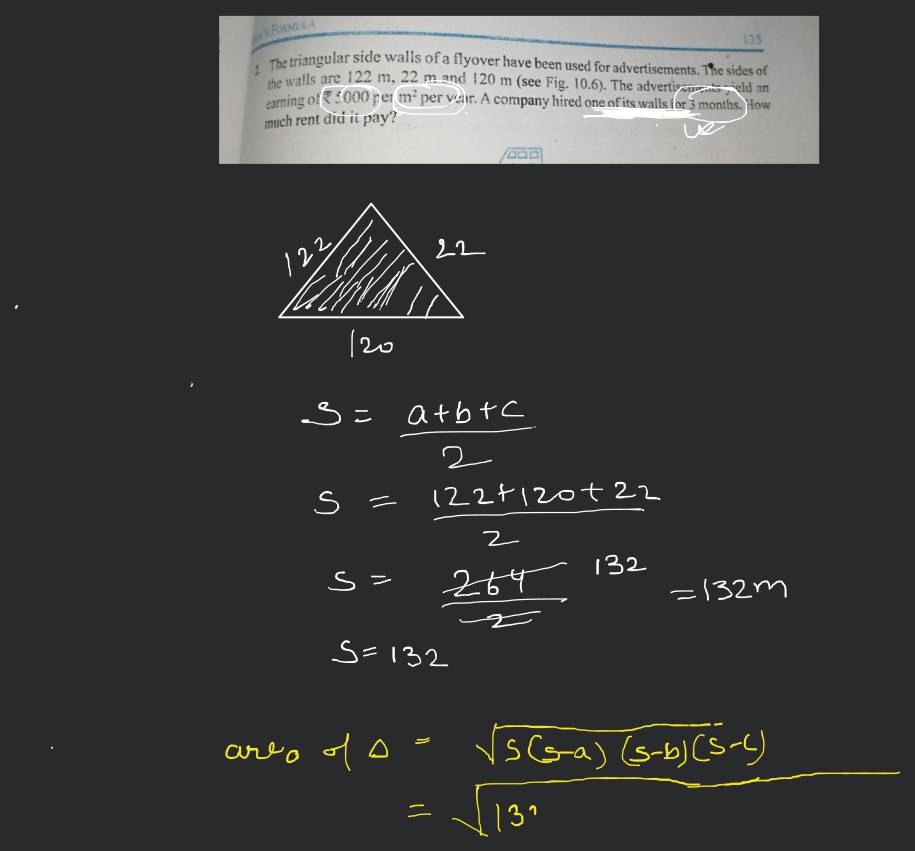 FORMULA
135
2. The triangular side walls of a flyover have been used for advertisements. The sides of
the walls are 122 m, 22 m and 120 m (see Fig. 10.6). The advertisements yield an
earning of ₹ 5000 per m² per year. A company hired one of its walls for 3 months. How
much rent did it pay?
122
22
120
S = a+b+c
2
S = 122+120+22
2
S = 264 132 = 132m
2
S = 132
area of Δ = √s(s-a) (s-b)(s-c)
= √